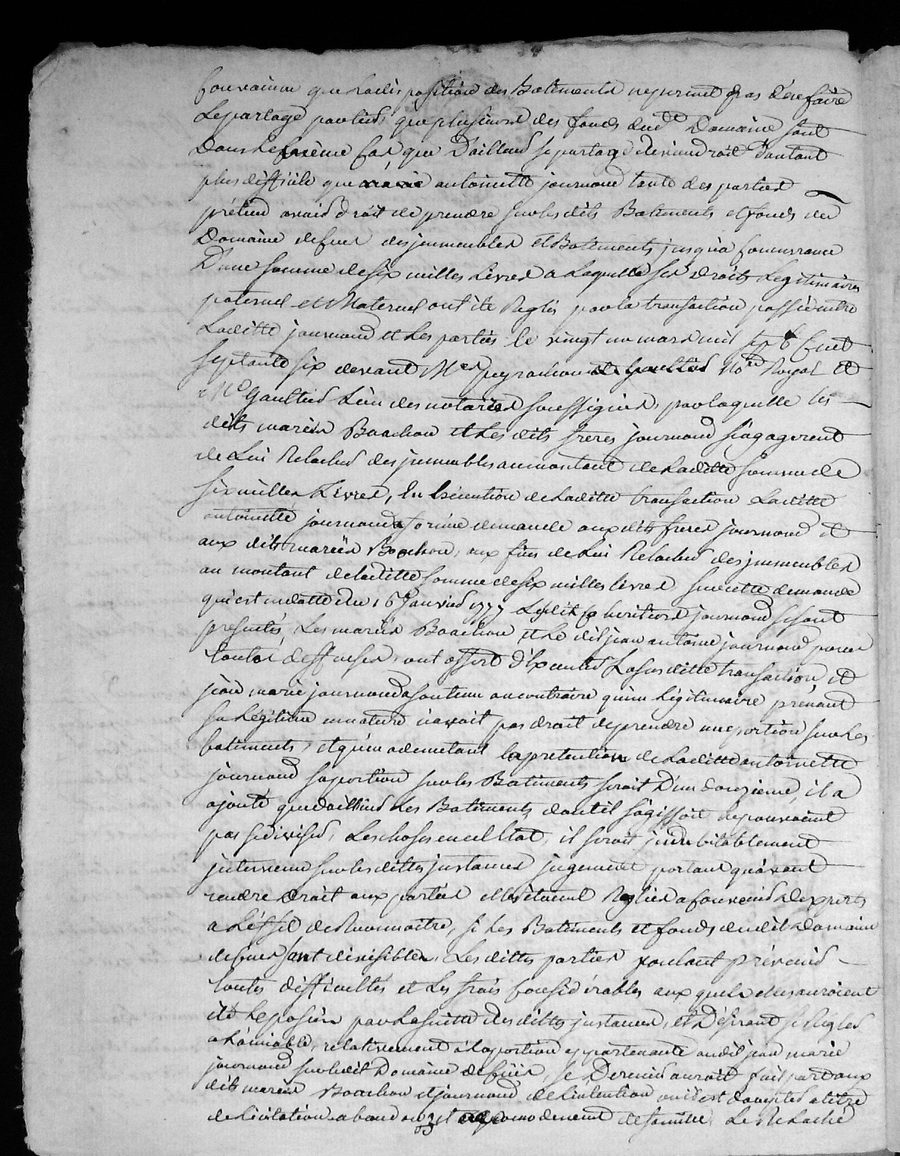 convaincu que la disposition des Batiments ne permet pas d'en faire
Le partage parties que plusieurs des fonds dudt Domaine sont
Dans Le même cas que D'ailleurs le partage deviendroit D'autant
plus difficile que marie antoinette journoud tante des parties
prétend avoir droit de prendre sur les dits Batiments et fonds du
Domaine de fuer des jmmeubles et Batiments jusqu'a concurrance
D'une somme de six milles Livres a Laquelle ses droits Legitimaires
paternel et Maternel ont été Reglés par la transaction passée entre
Laditte journoud et Les parties le vingt un mars mil sept Cent
septante six devant Mes peyramont et Gaultier Nores Royal et
Me Gaultier L'un des notaires soussignés, par laquelle les
dits mariés Boachon et Les dits freres journoud s'engagerent
de Lui Relacher des jmmeubles au montant de Laditte somme de
six milles Livres, En Exécution de Laditte transaction Laditte
antoinette journoud a formé demande aux dits freres journoud et
aux dits mariés Boachon, aux fins de Lui Relacher des jmmeubles
au montant de laditte somme de six milles livres sur cette demande
qui est en datte du 16 Janvier 1777 Lesdits heritiers journoud se sont
presentés, Les mariés Boachon et Le dit jean antoine journoud pour
toutes deffenses, ont offert d'Executer La susditte transaction et
jean marie journoud a soutenu au contraire qu'un Légitimaire prenant
sa Légitime en nature n'avoit pas droit de prendre une portion sur les
batiments, et qu'en admettant la pretention de Laditte antoinette
journoud sa portion sur les Batiments seroit D'un douzieme, il a
ajouté que d'ailleurs les Batiments dont il s'agissoit ne pouvoient
pas se diviser, Les choses en cet Etat, il seroit jndubitablement
jntervenu sur les dittes jnstances jugement portant qu'avant
rendre droit aux parties elles seroient Reglées a convenir d'experts
a L'éffet de Reconnoitre, si Les Batiments et fonds dudit Domaine
de fuer sont divisibles, Les dittes parties voulant prévenir
toutes difficultés et Les frais considérables aux quels elles auroient
été Exposées par La suitte des dittes jnstances, et Désirant se Régler
a L'amiable, relativement a la portion appartenante audit jean marie
journoud sur ledit Domaine de fuer, ce Dernier auroit fait part aux
dits mariés Boachon et journoud de L'intention ou il est de a titre
de Licitation abandon et accomodement de famille, Le Relaché